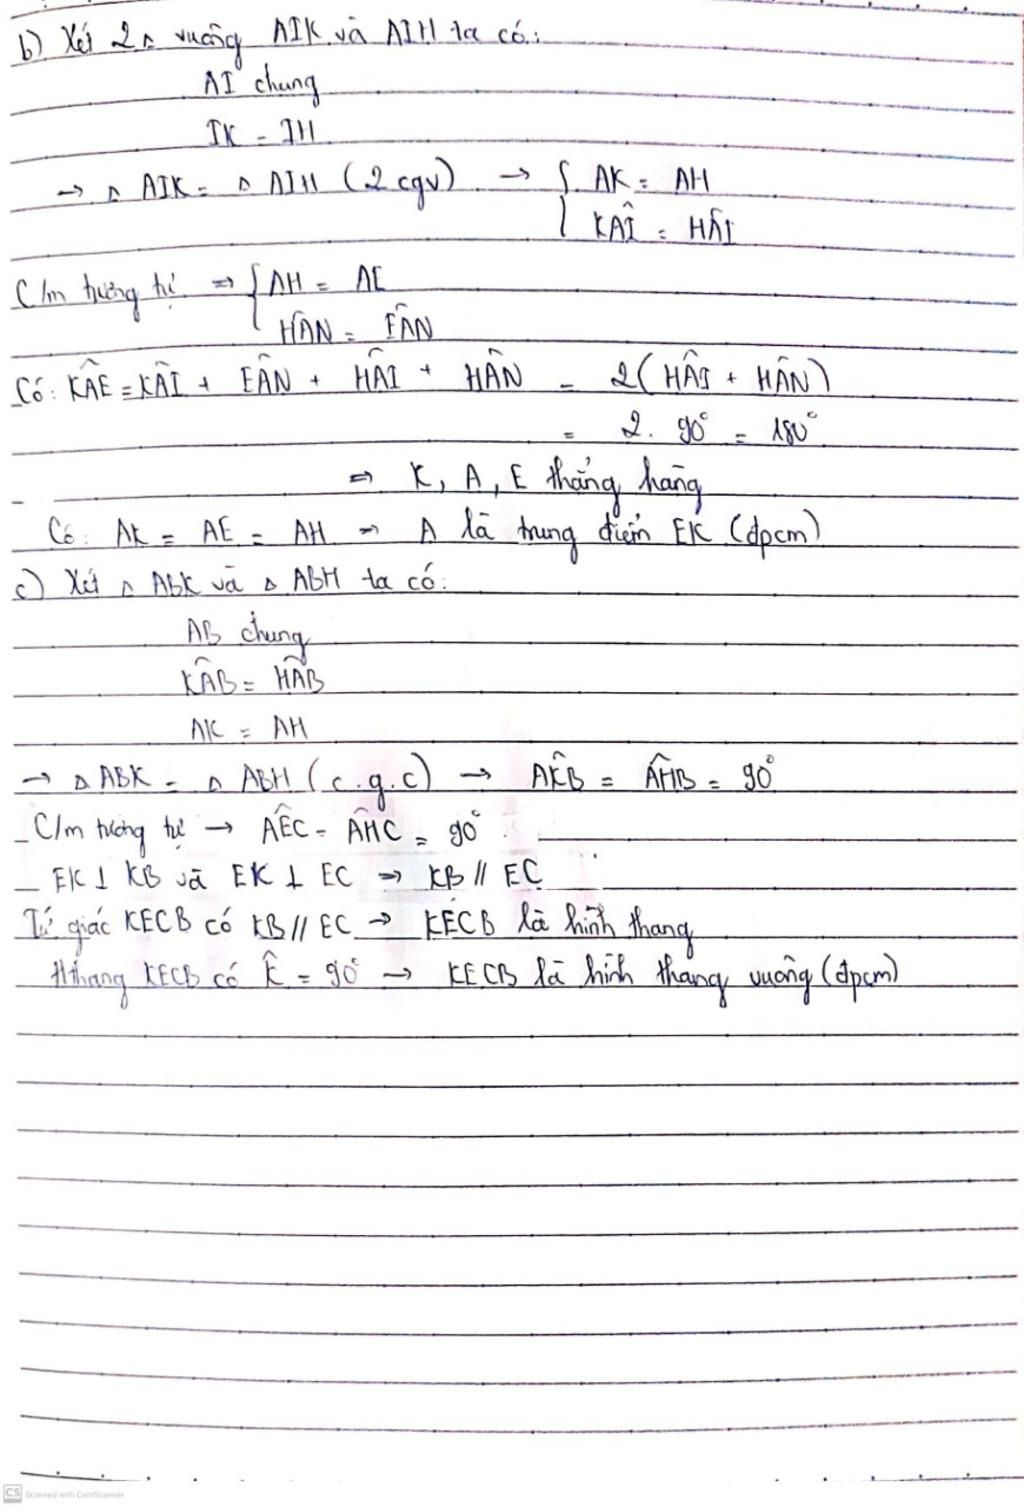 b) Xét 2 Δ vuông AIK và AIH ta có:
AI chung
IK = IH
→ Δ AIK = Δ AIH (2 cgv) → { AK = AH
KÂI = HÂI
C/m tương tự ⇒ { AH = AE
HÂN = EÂN
Có: KÂE = KÂI + EÂN + HÂI + HÂN = 2(HÂI + HÂN)
= 2. 90° = 180°
⇒ K, A, E thẳng hàng
Có: AK = AE = AH → A là trung điểm EK (đpcm)
c) Xét Δ ABK và Δ ABH ta có:
AB chung
KÂB = HÂB
AK = AH
→ Δ ABK = Δ ABH (c.g.c) → AK̂B = AĤB = 90°
C/m tương tự → AÊC = AĤC = 90°
EK ⊥ KB và EK ⊥ EC → KB // EC
Tứ giác KECB có KB // EC → KECB là hình thang
Hthang KECB có K̂ = 90° → KECB là hình thang vuông (đpcm)
CS Scanned with CamScanner